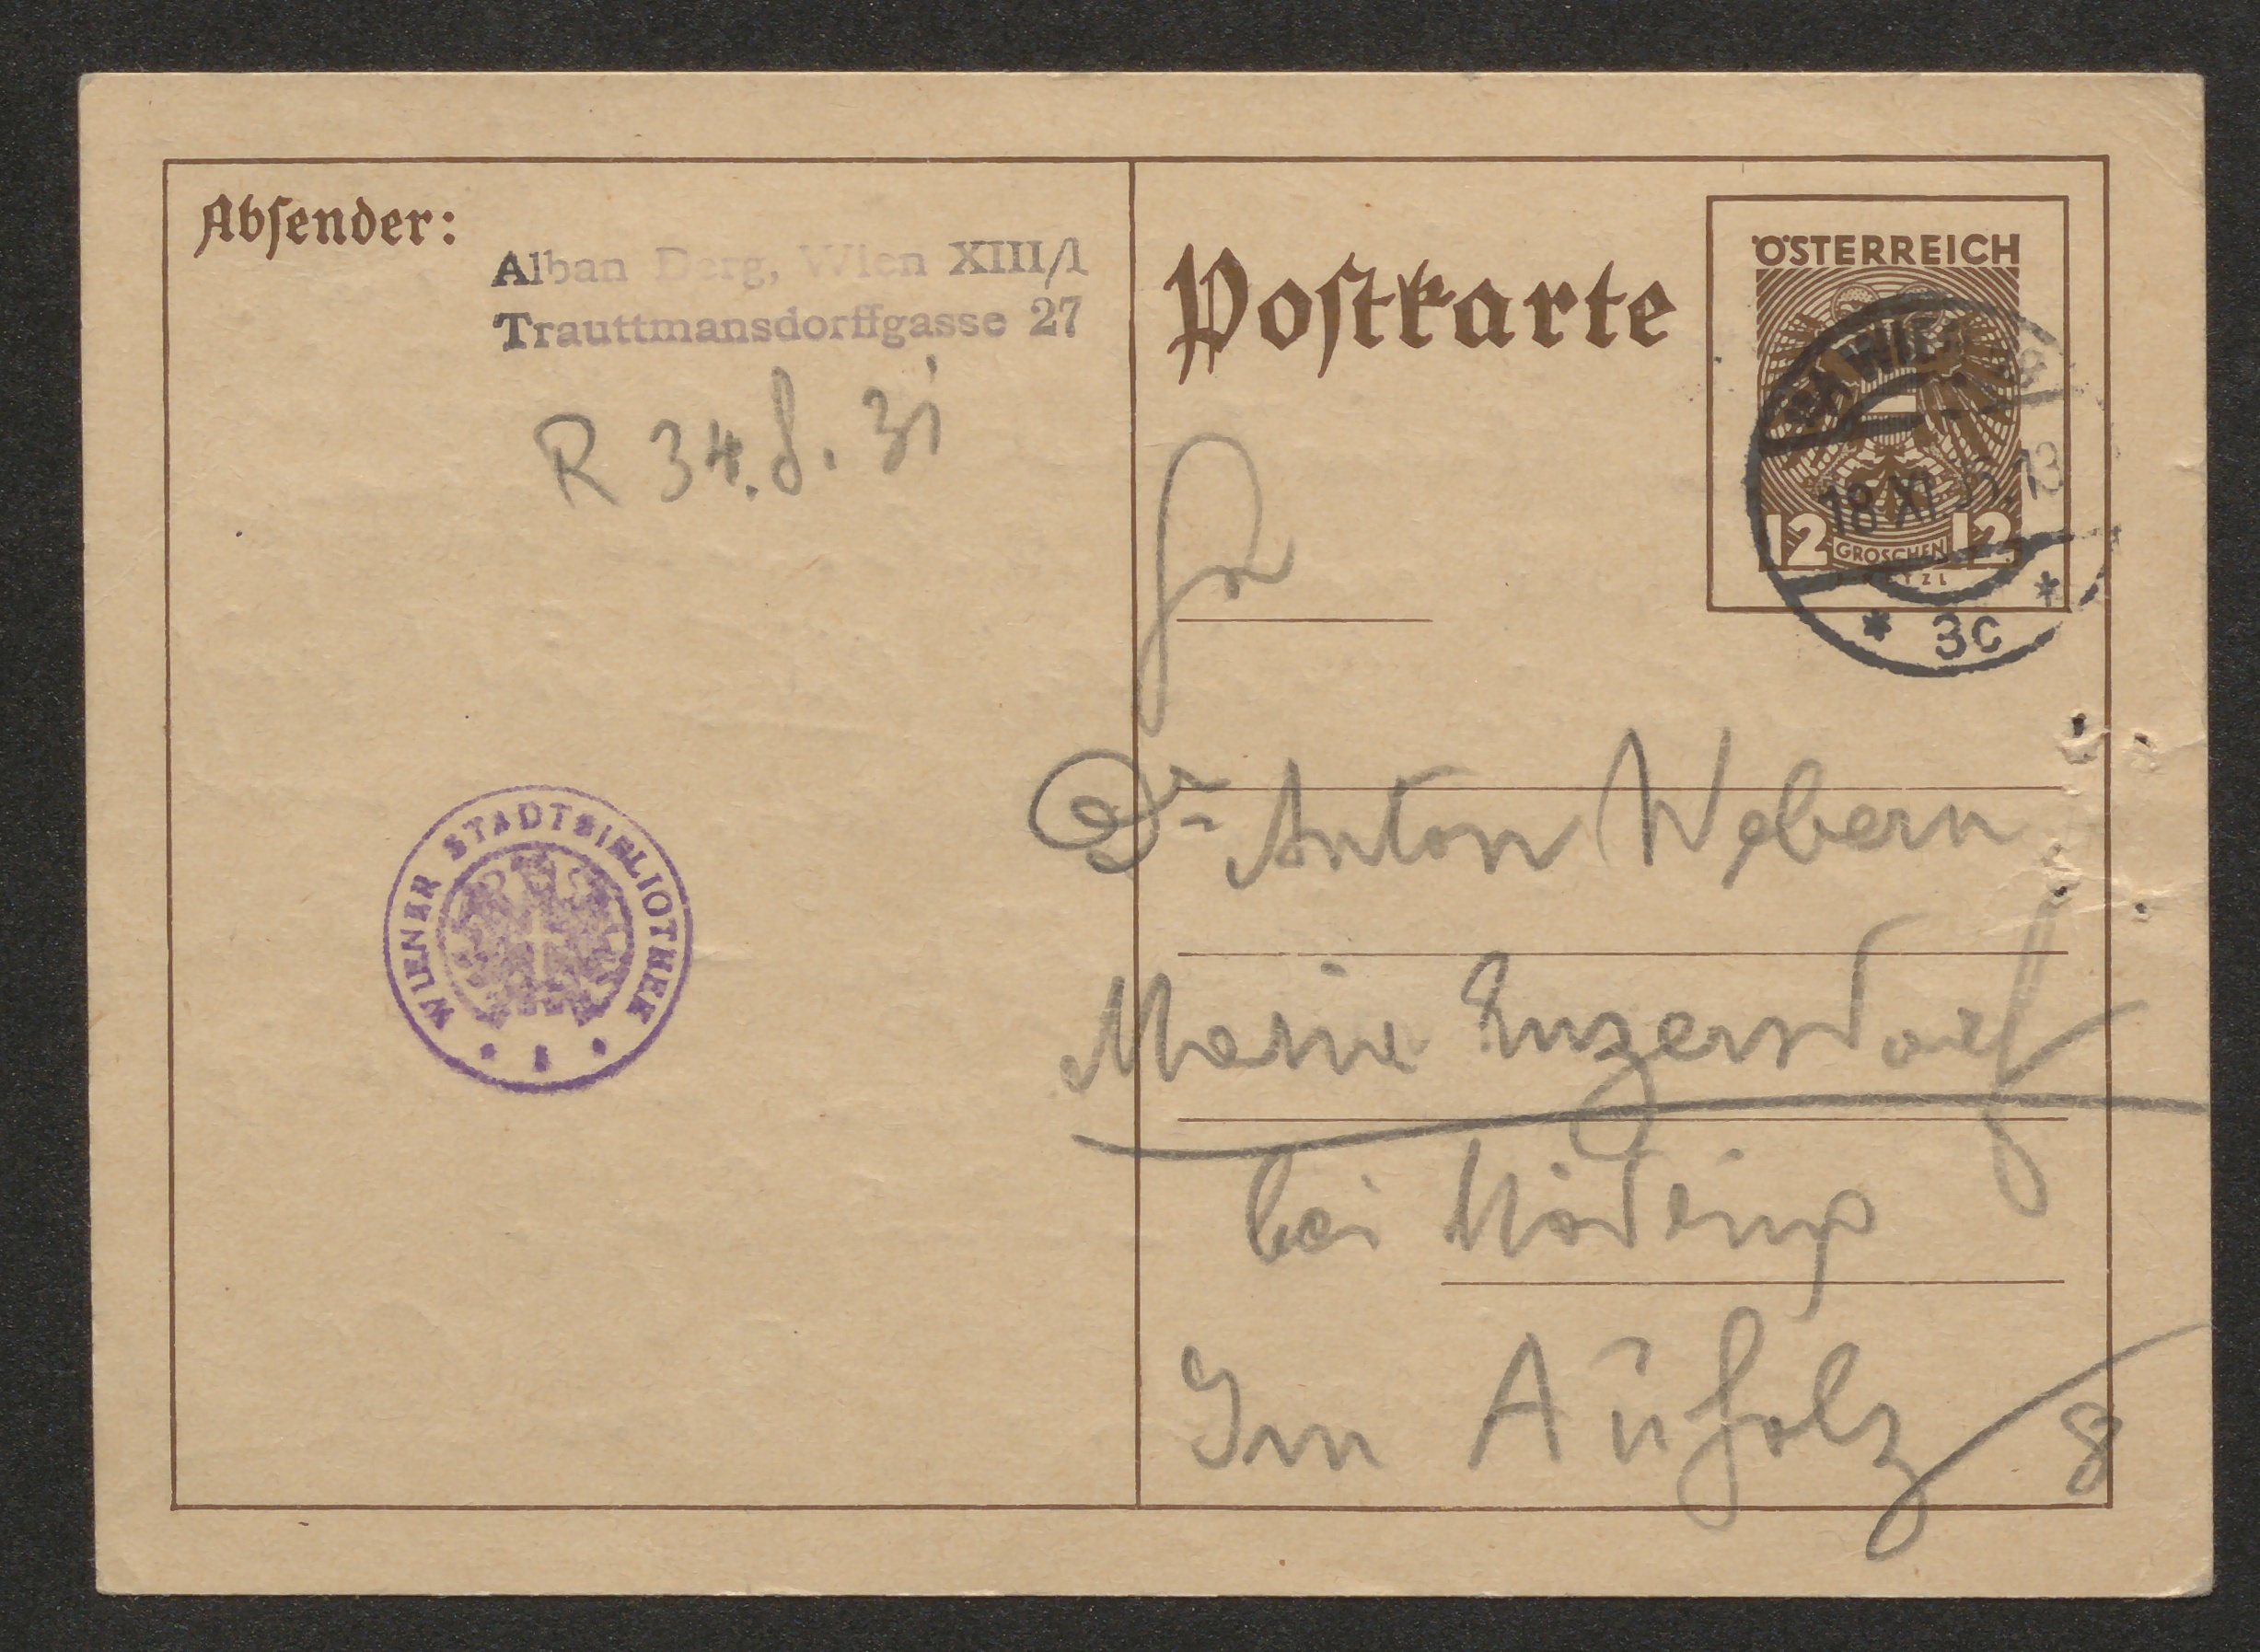 Absender:
Alban Berg, Wien XIII/1
Trauttmansdorffgasse 27
R 34.8.31
Postkarte
ÖSTERREICH
12 GROSCHEN 12
WIEN
18 XI 13
* 3c *
Dr Anton Webern
Maria Enzersdorf
bei Mödling
Im Auholz 8
WIENER STADTBIBLIOTHEK